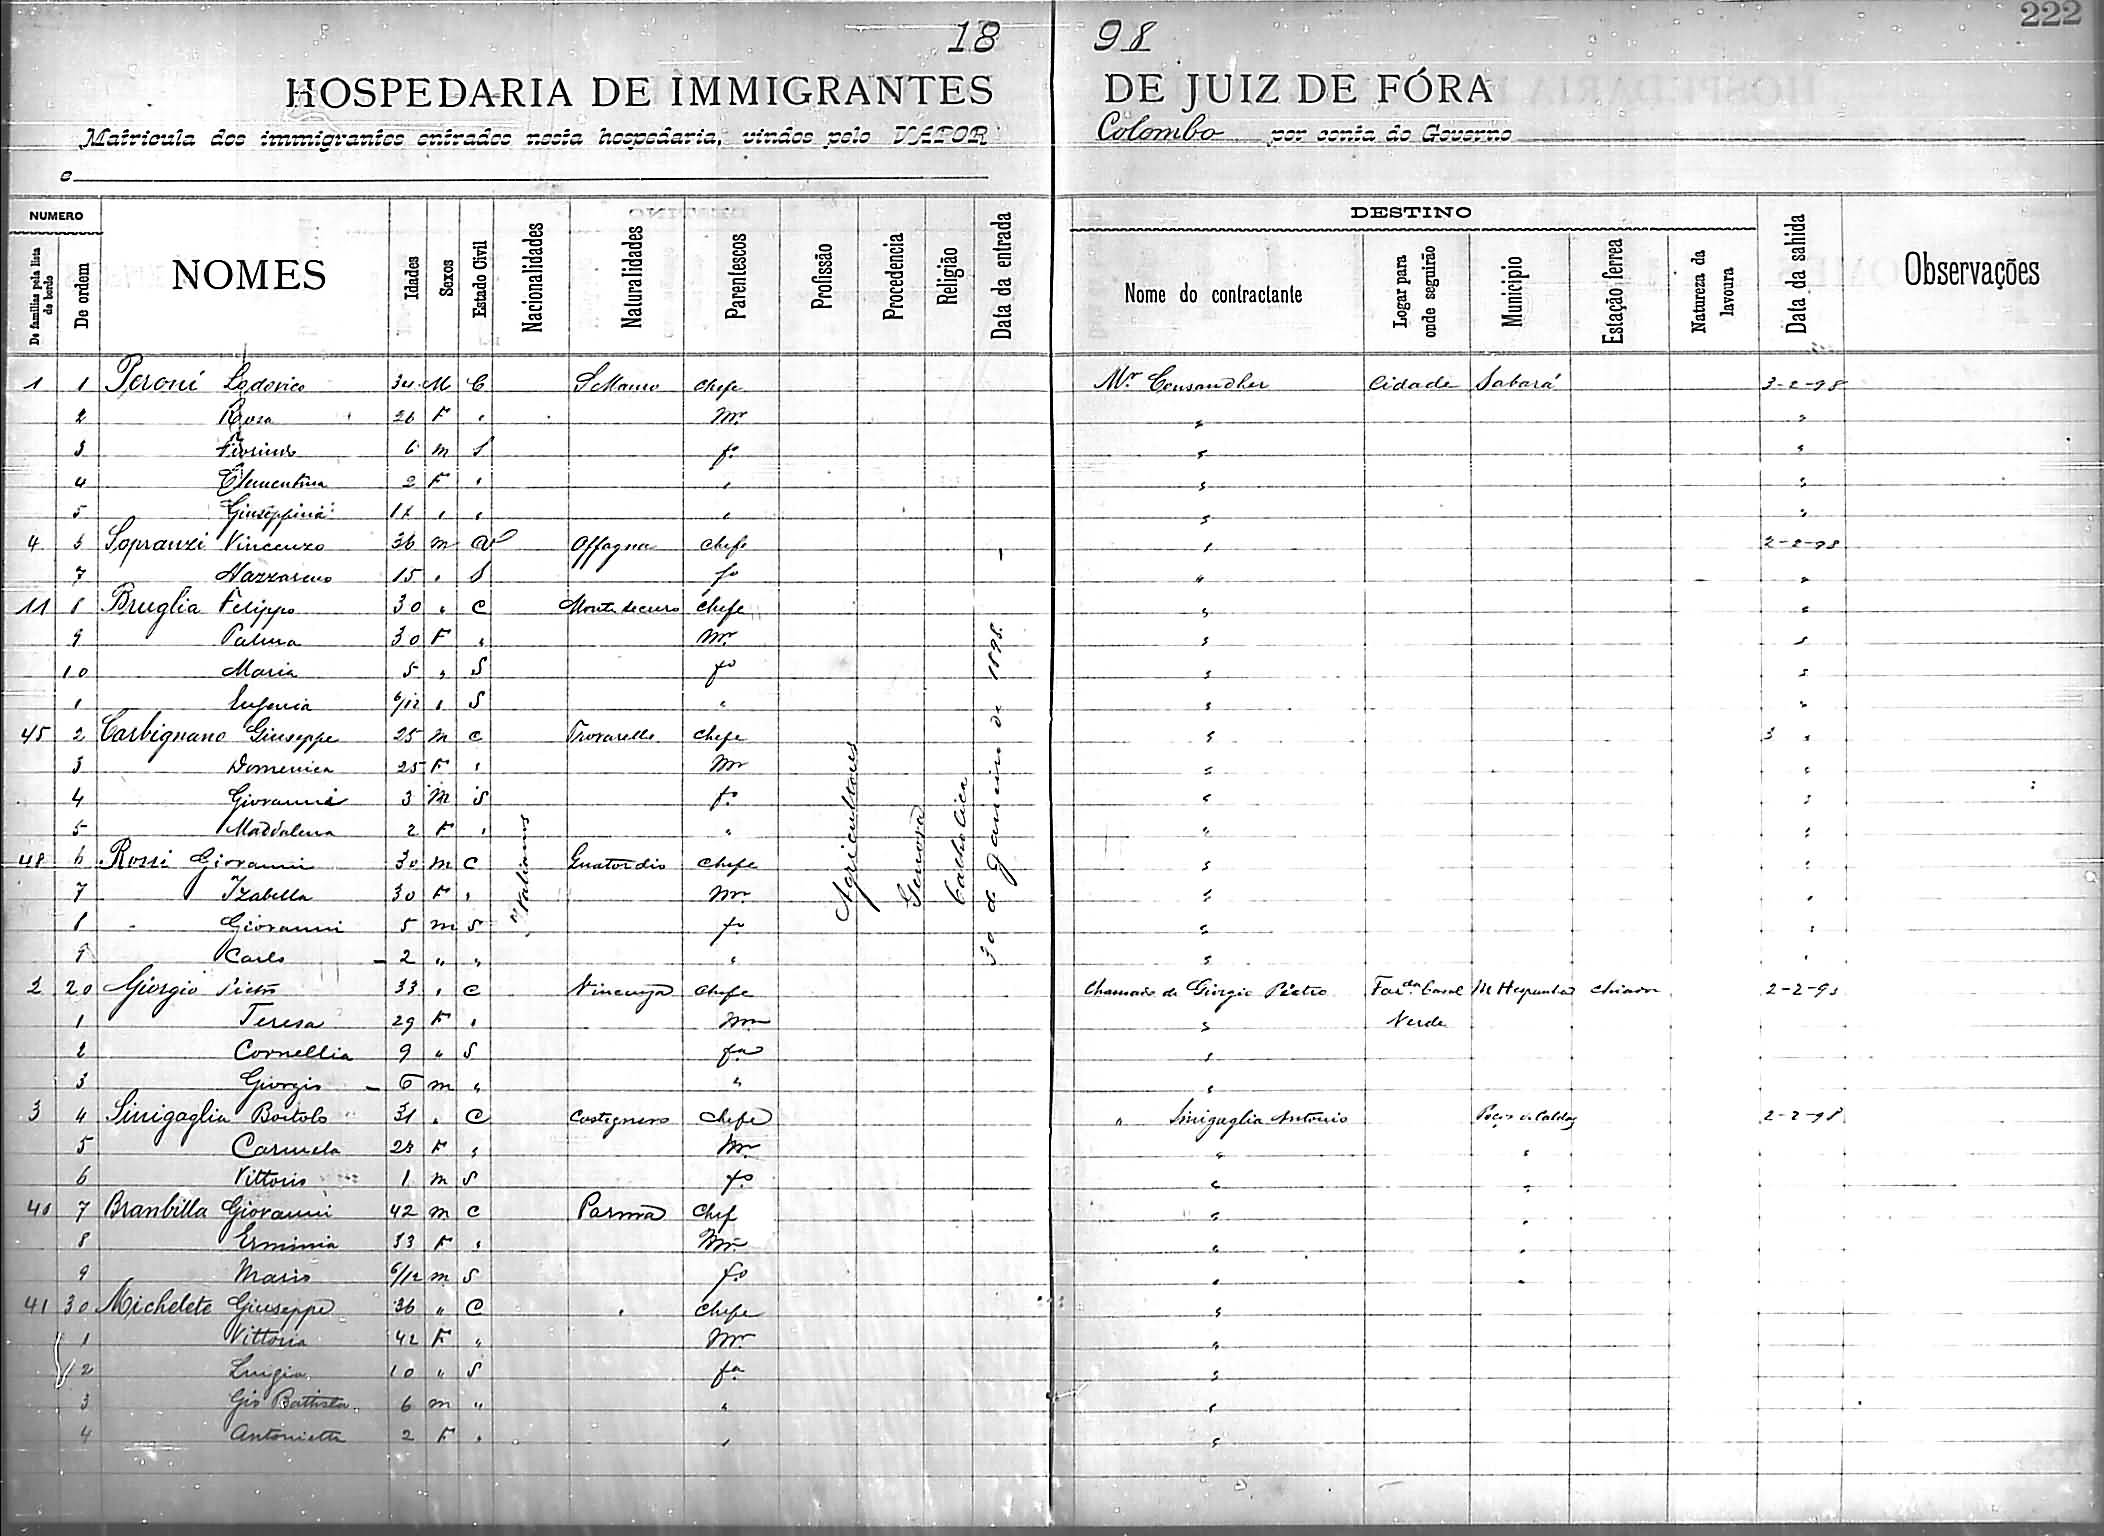 222
18 98
HOSPEDARIA DE IMMIGRANTES DE JUIZ DE FÓRA
Matricula dos immigrantes entrados nesta hospedaria, vindos pelo VAPOR Colombo por conta do Governo
e
NUMERO
De familias pela lista de bordo
De ordem
NOMES
Idades
Sexos
Estado Civil
Nacionalidades
Naturalidades
Parentescos
Profissão
Procedencia
Religião
Data da entrada
DESTINO
Nome do contractante
Logar para onde seguirão
Municipio
Estação ferrea
Natureza da lavoura
Data da sahida
Observações
1 1 Peroni Lodovico 34 M C Chefe Mr Cidade Sabará 3-2-98
2 Rosa 26 F " Mr " "
3 6 m S fo " "
4 Clementina 2 F " " " "
5 Giuseppina " " " " "
4 6 Sopranzi Vincenzo 36 m Offagna Chefe " 2-2-98
7 Nazzareno 15 " S fo " "
11 8 Bruglia Felippo 30 " C Chefe " "
9 Palma 30 F " Mr " "
10 Maria 5 " S fo " "
1 Eugenia 6/12 " S " " "
45 2 Carbignano Giuseppe 25 m C Chefe " 3 "
3 Domenica 25 F " Mr " "
4 Giovanni 3 M S fo " "
5 Maddalena 2 F " " " "
48 6 Rossi Giovanni 30 m C Chefe " "
7 Izabella 30 F " Mr " "
8 Giovanni 5 m S fo " "
9 Carlo 2 " " " " "
Italianos
Agricultores
Genova
Catholica
30 de Janeiro de 1898
2 20 Giorgio Pietro 33 " C Chefe Chamado de Giorgio Pietro Fazda Casal M Hespanha Chiador 2-2-98
1 Teresa 29 F " Mr " Verde
2 Cornellia 9 " S fa "
3 Giorgio 6 m " " "
3 4 Sinigaglia Bortolo 31 " C Costegnero Chefe " Sinigaglia Antonio Poços de Caldas 2-2-98
5 Carmela 28 F " Mr " "
6 Vittorio 1 m S fo " "
40 7 Branbilla Giovanni 42 m C Parma Chef " "
8 Erminia 33 F " Mr " "
9 Mario 6/12 m S fo " "
41 30 Michelete Giuseppe 36 " C " Chefe "
1 Vittoria 42 F " Mr "
2 Luigia 10 " S fa "
3 Gio Battista 6 m " " "
4 Antonietta 2 F " " "